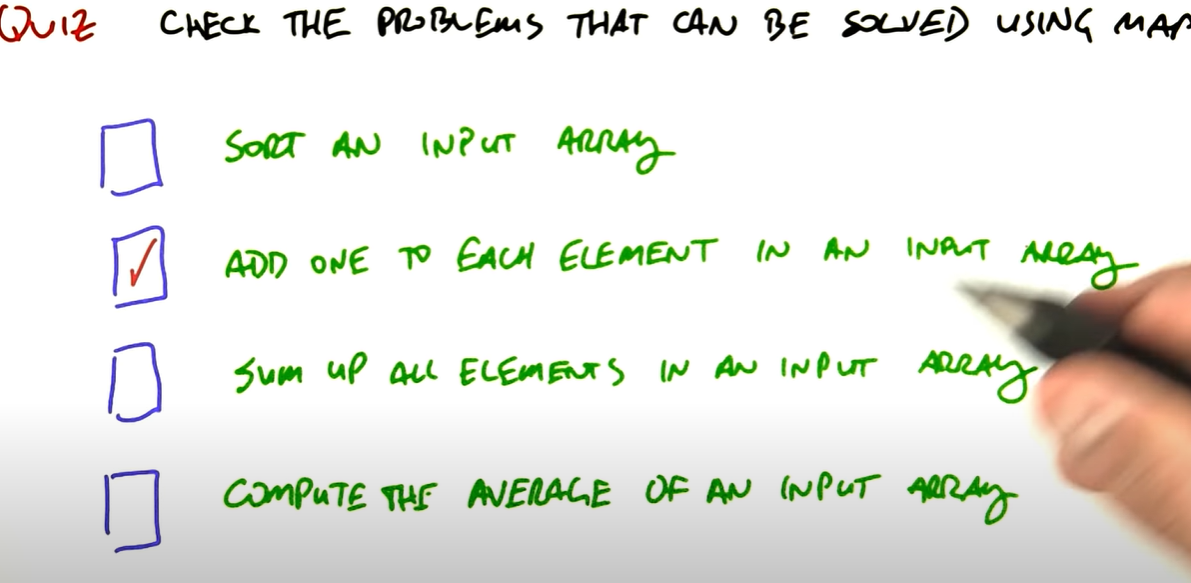 QUIZ CHECK THE PROBLEMS THAT CAN BE SOLVED USING MAP
SORT AN INPUT ARRAY
ADD ONE TO EACH ELEMENT IN AN INPUT ARRAY
SUM UP ALL ELEMENTS IN AN INPUT ARRAY
COMPUTE THE AVERAGE OF AN INPUT ARRAY